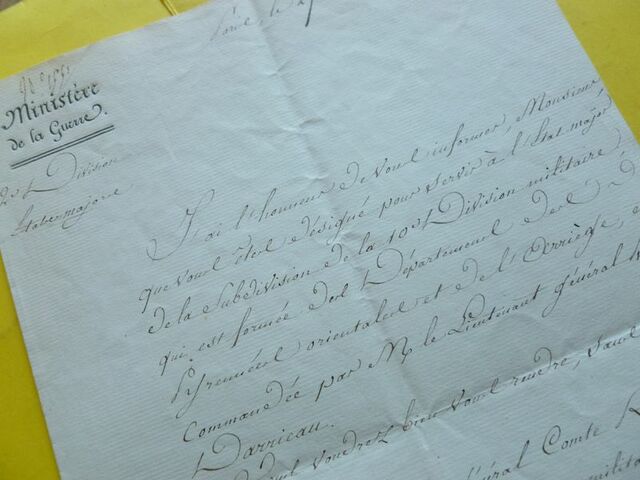 Paris, le
Ministère
de la Guerre.
Division
Etats-majors
J'ai l'honneur de vous informer, Monsieur
que vous êtes désigné pour servir à l'Etat-major
de la Subdivision de la 10e Division militaire,
qui est formée des Départemens des
Pyrenées orientales et de l'Arriège, e
Commandée par M. le Lieutenant général
Darricau.
voudrez bien vous rendre, sans
éral Comte
militai